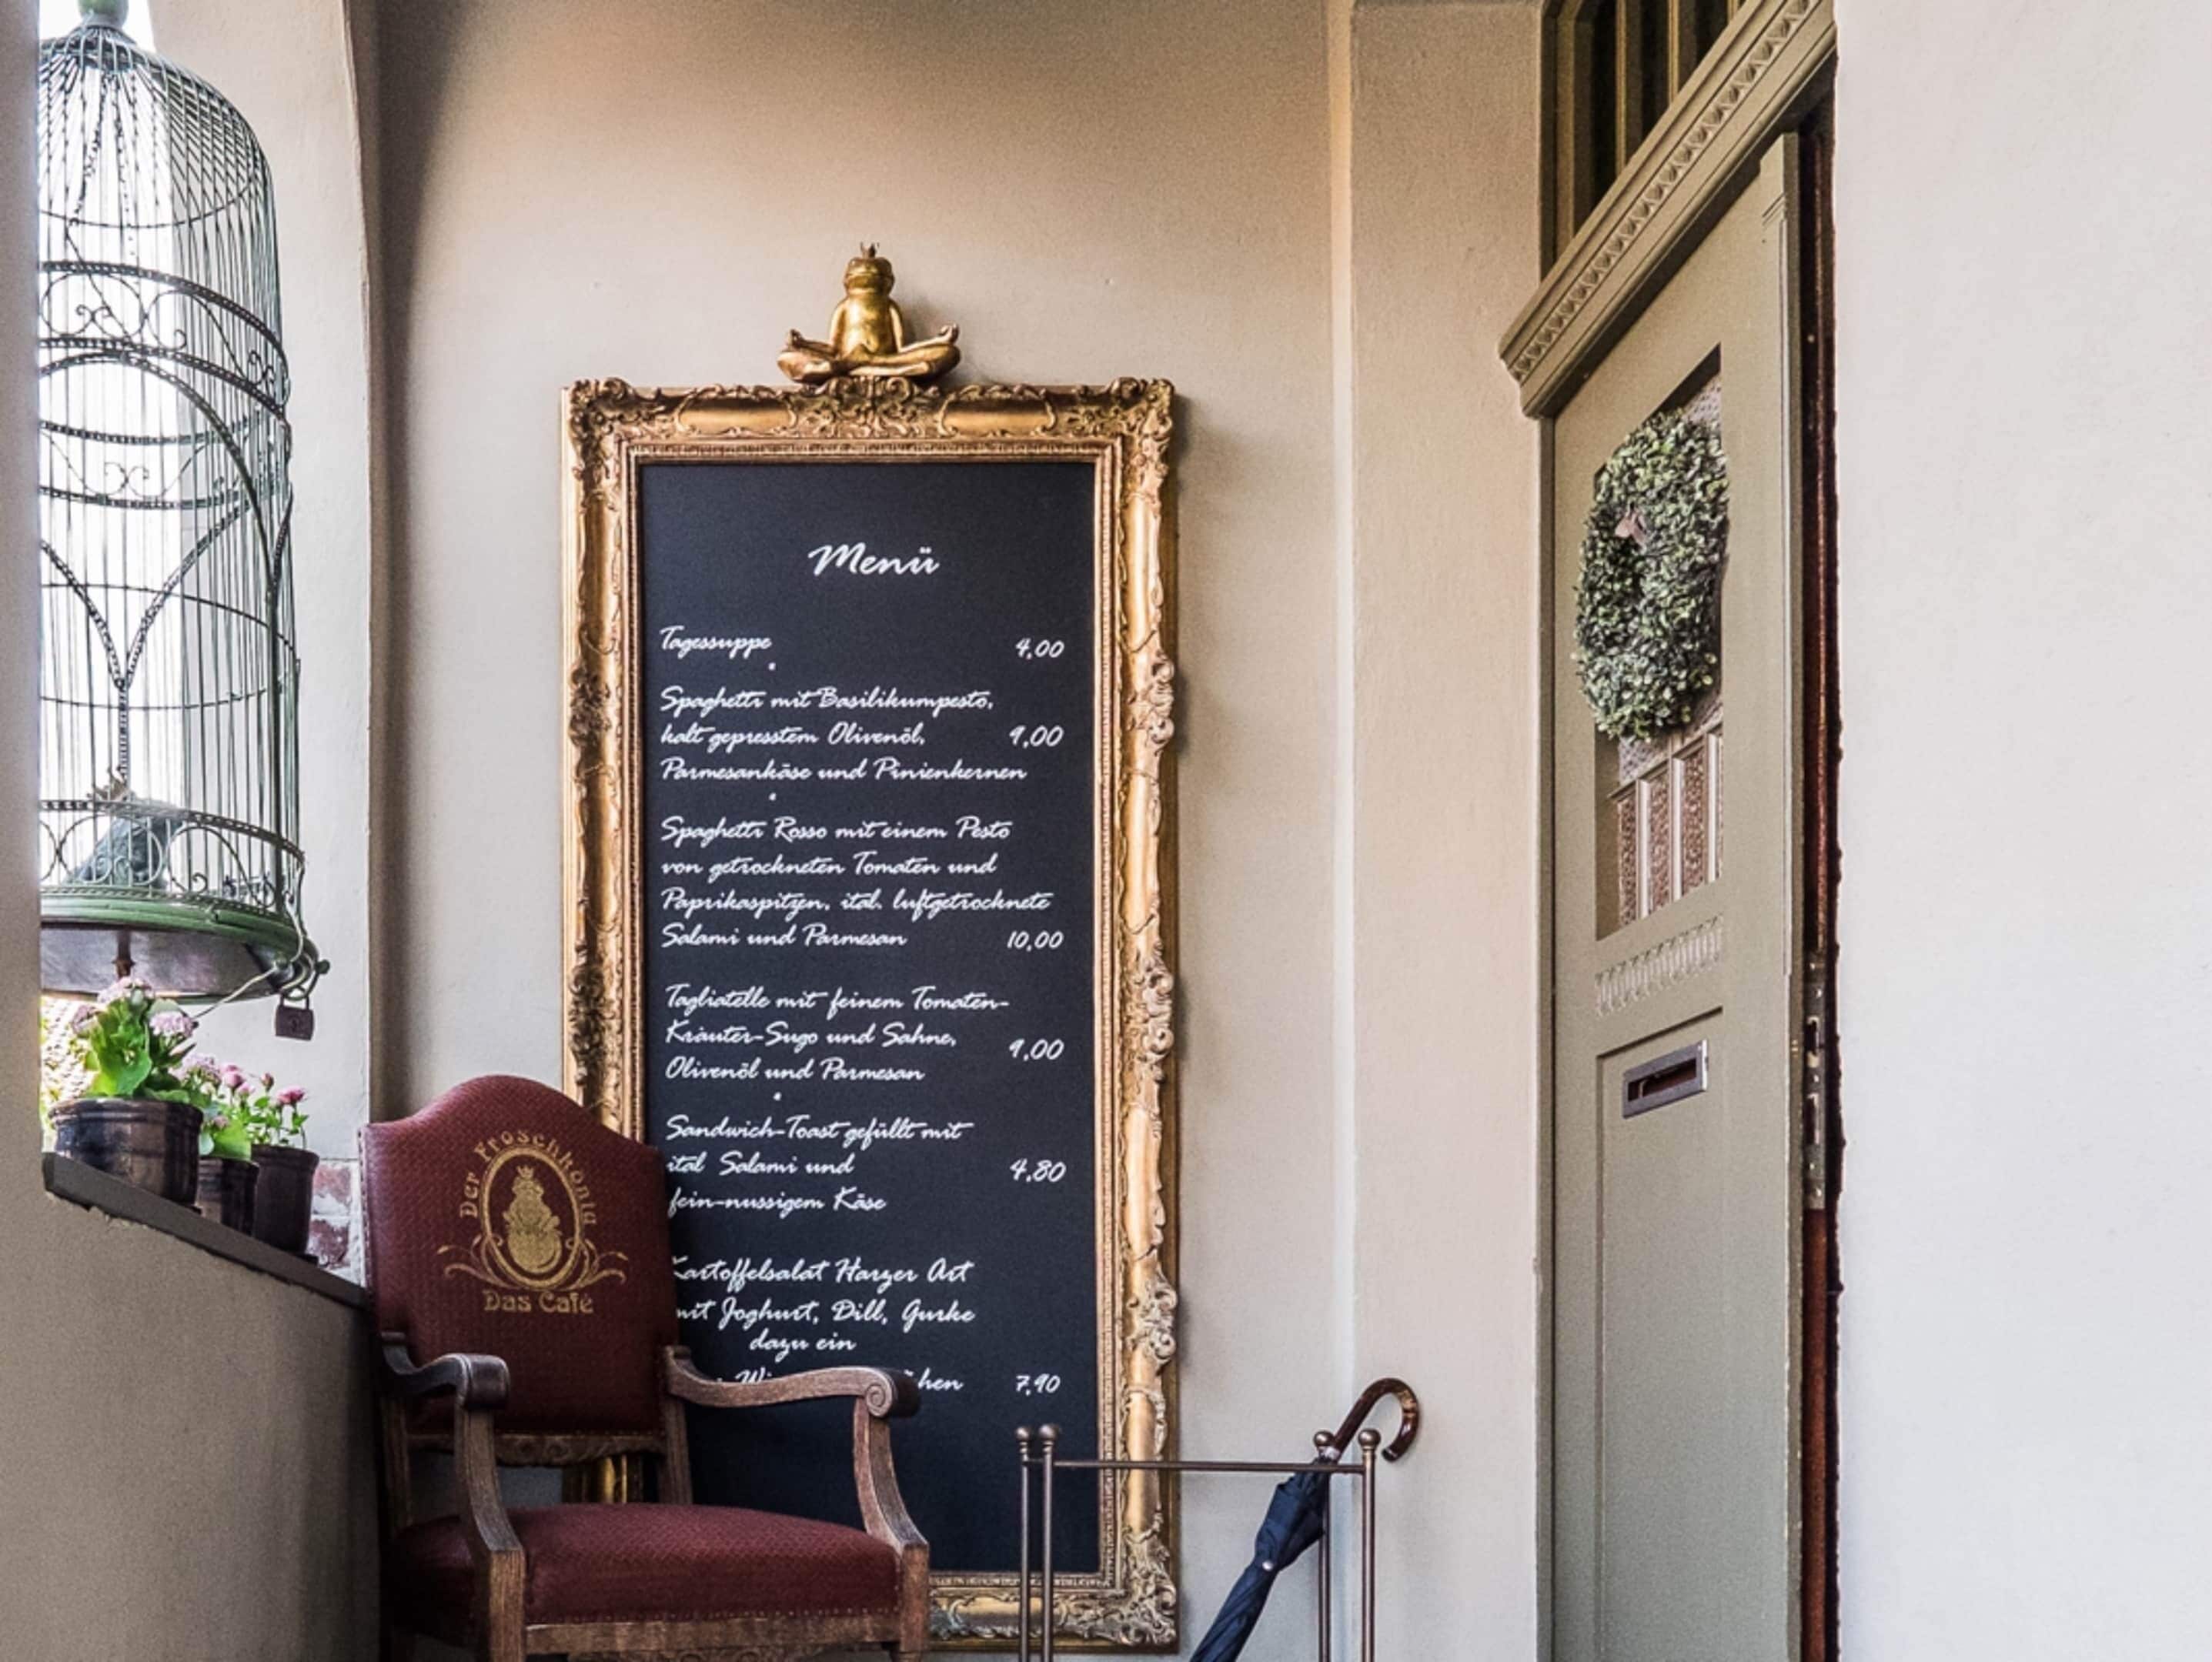 Menü
Tagessuppe 4,00
Spaghetti mit Basilikumpesto,
kalt gepresstem Olivenöl, 9,00
Parmesankäse und Pinienkernen
Spaghetti Rosso mit einem Pesto
von getrockneten Tomaten und
Paprikaspitzen, ital. luftgetrocknete
Salami und Parmesan 10,00
Tagliatelle mit feinem Tomaten-
Kräuter-Sugo und Sahne, 9,00
Olivenöl und Parmesan
Sandwich-Toast gefüllt mit
ital Salami und 4,80
fein-nussigem Käse
Kartoffelsalat Harzer Art
mit Joghurt, Dill, Gurke
dazu ein
7,90
Der Froschkönig
Das Café